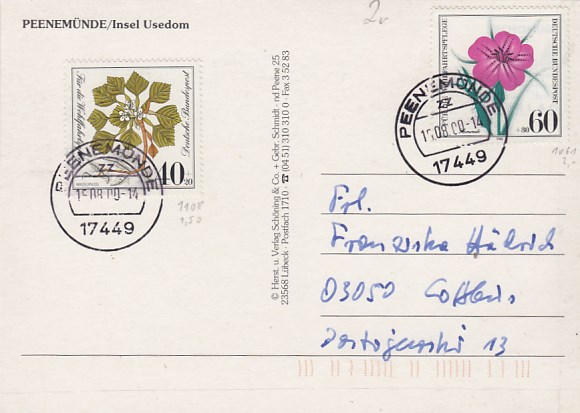 PEENEMÜNDE/Insel Usedom
2
Für die Wohlfahrtspflege
Deutsche Bundespost
40+20
DEUTSCHE BUNDESPOST
60
+30
PEENEMÜNDE
zz
15.08.00-14
17449
PEENEMÜNDE
zz
15.08.00-14
17449
1108
1,50
1061
© Herst. u. Verlag Schöning & Co. + Gebr. Schmidt · nd Peene 25
23568 Lübeck · Postfach 1710 · ☎ (04 51) 310 310 0 · Fax 3 52 83
Frl.
Franziska
03050 Cottbus
13